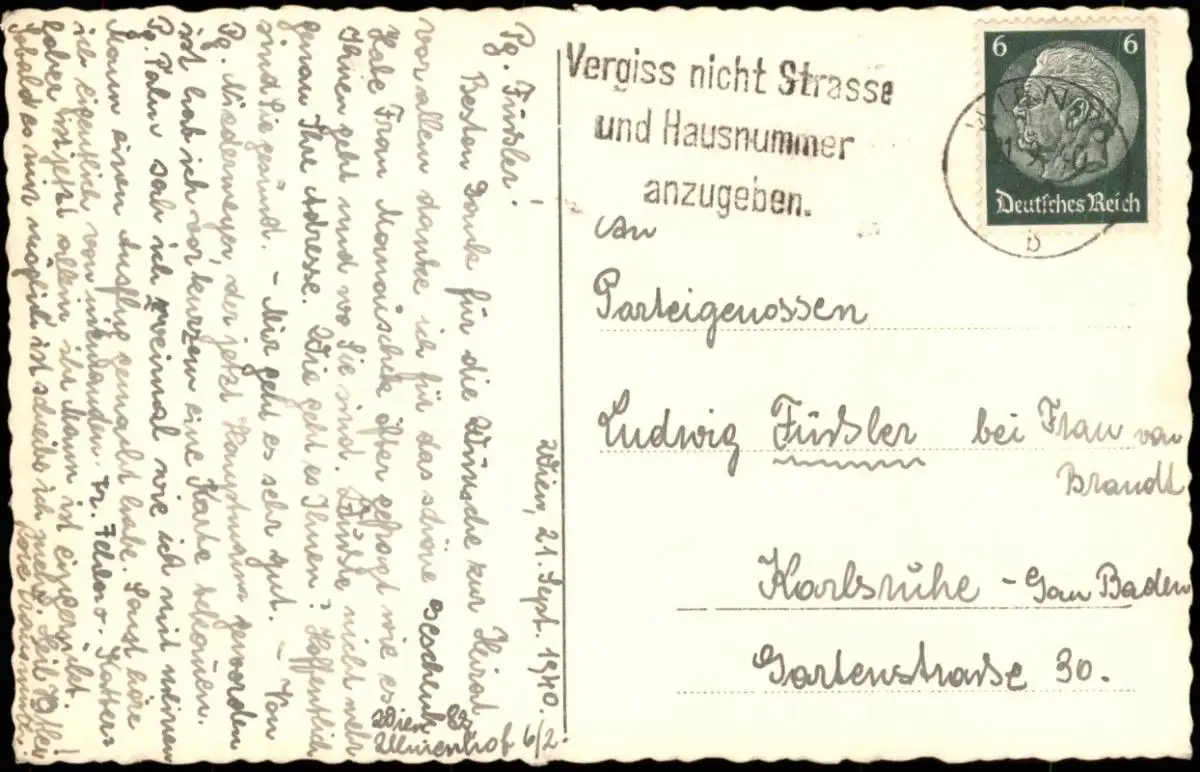 Pg. Füssler!
Besten Dank für die Wünsche zur Heirat
vor allem danke ich für das schöne Geschenk
Habe Frau öfter gefragt wie es
Ihnen geht und wo Sie sind. Wüsste nicht mehr
genau Ihre Adresse. Wie geht es Ihnen? Hoffentlich
sind Sie gesund. – Mir geht es sehr gut. – Von
Pg. Niedermeyer, der jetzt geworden
ist hab ich vor kurzem eine Karte bekommen.
Pg. Palm sah ich zweimal wie ich mit meinem
Mann einen Ausflug gemacht habe. Sonst höre
ich eigentlich von niemandem.
ist jetzt allein ihr Mann ist eingerückt.
Sobald es mir möglich ist schreibe ich mehr. Heil Hitler!
Wien, 21. Sept. 1940.
Wien
Ulmenhof 6/2.
Vergiss nicht Strasse
und Hausnummer
anzugeben.
6 6
Deutsches Reich
WIEN
b
An
Parteigenossen
Ludwig Füssler bei Frau von
Brandt
Karlsruhe – Gau Baden
Gartenstraße 30.